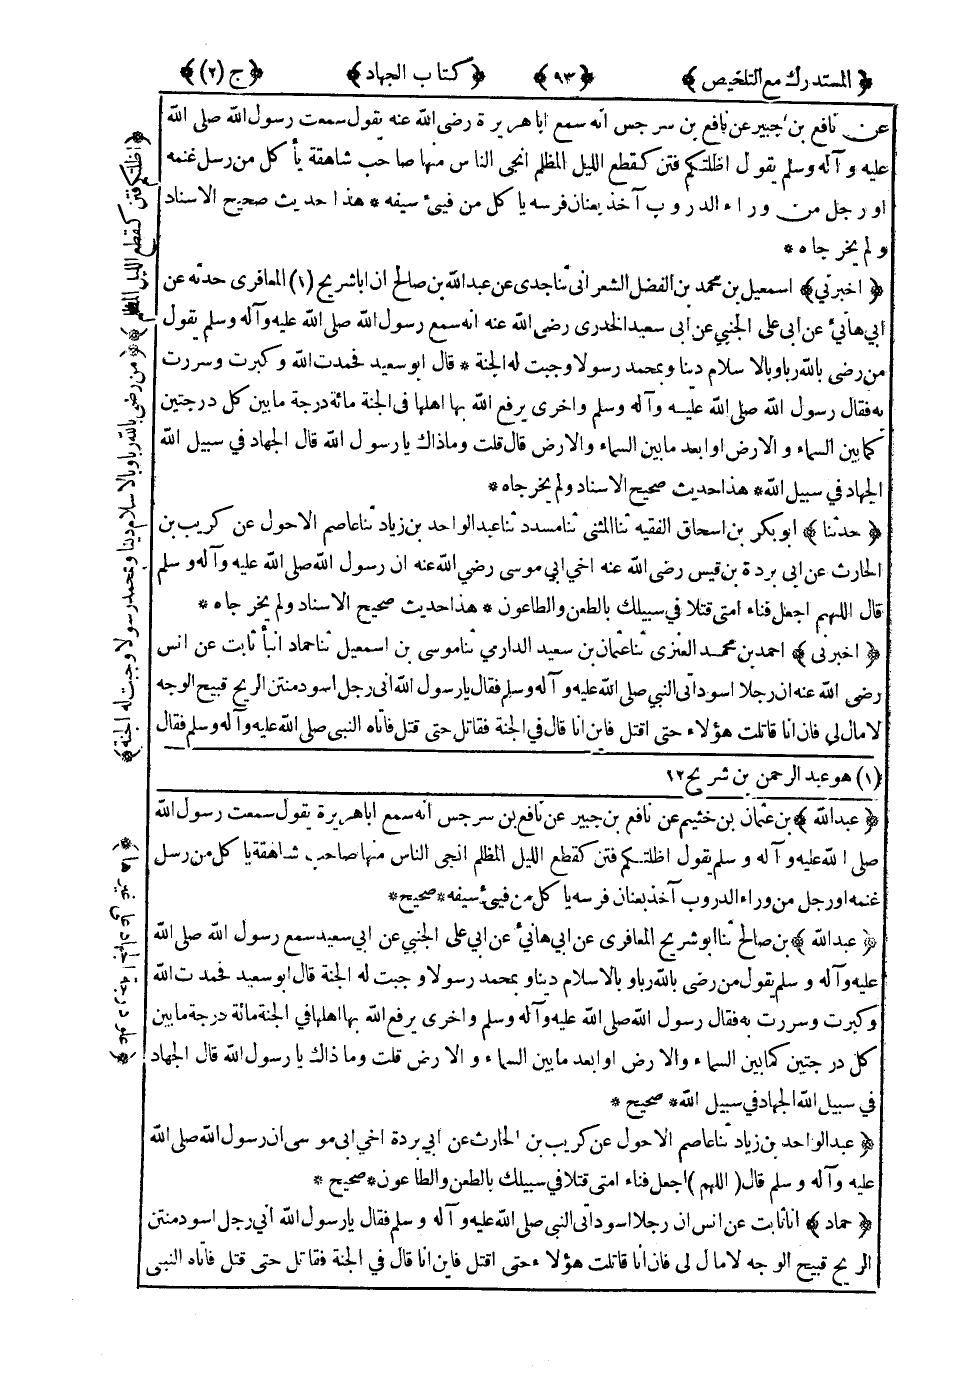 ﴿ المستدرك مع التلخيص ﴾ ﴿ ٩٣ ﴾ ﴿ كتاب الجهاد ﴾ ﴿ ج (٢) ﴾
عن نافع بن جبير عن نافع بن سرجس انه سمع ابا هريرة رضى الله عنه يقول سمعت رسول الله صلى الله
عليه وآله وسلم يقول اظلتكم فتن كقطع الليل المظلم انجى الناس منها صاحب شاهقة يأكل من رسل غنمه
او رجل من وراء الدروب آخذ بعنان فرسه ياكل من فيئ سيفه * هذا حديث صحيح الاسناد
ولم يخرجاه *
﴿ اخبرني ﴾ اسمعيل بن محمد بن الفضل الشعرانى ثنا جدى عن عبد الله بن صالح ان ابا شريح (١) المعافرى حدثه عن
ابي هانئ عن ابى على الجنبي عن ابى سعيد الخدرى رضى الله عنه انه سمع رسول الله صلى الله عليه وآله وسلم يقول
من رضى بالله ربا وبالاسلام دينا وبمحمد رسولا وجبت له الجنة * قال ابو سعيد فحمدت الله وكبرت وسررت
به فقال رسول الله صلى الله عليه وآله وسلم واخرى يرفع الله بها اهلها فى الجنة مائة درجة ما بين كل درجتين
كما بين السماء والارض او ابعد ما بين السماء والارض قال قلت وما ذاك يا رسول الله قال الجهاد في سبيل الله
الجهاد في سبيل الله * هذا حديث صحيح الاسناد ولم يخرجاه *
﴿ حدثنا ﴾ ابو بكر بن اسحاق الفقيه ثنا المثنى ثنا مسدد ثنا عبد الواحد بن زياد ثنا عاصم الاحول عن كريب بن
الحارث عن ابى بردة بن قيس رضى الله عنه اخي ابي موسى رضي الله عنه ان رسول الله صلى الله عليه وآله وسلم
قال اللهم اجعل فناء امتى قتلا في سبيلك بالطعن والطاعون * هذا حديث صحيح الاسناد ولم يخرجاه *
﴿ اخبرنى ﴾ احمد بن محمد العنزى ثنا عثمان بن سعيد الدارمي ثنا موسى بن اسمعيل ثنا حماد انبأ ثابت عن انس
رضى الله عنه ان رجلا اسود اتى النبي صلى الله عليه وآله وسلم فقال يا رسول الله انى رجل اسود منتن الريح قبيح الوجه
لا مال لي فان انا قاتلت هؤلاء حتى اقتل فاين انا قال في الجنة فقاتل حتى قتل فاتاه النبى صلى الله عليه وآله وسلم فقال
(١) هو عبد الرحمن بن شريح ١٢
﴿ عبد الله ﴾ بن عثمان بن خثيم عن نافع بن جبير عن نافع بن سرجس انه سمع ابا هريرة يقول سمعت رسول الله
صلى الله عليه وآله وسلم يقول اظلتكم فتن كقطع الليل المظلم انجى الناس منها صاحب شاهقة ياكل من رسل
غنمه او رجل من وراء الدروب آخذ بعنان فرسه ياكل من فيئ سيفه * صحيح *
﴿ عبد الله ﴾ بن صالح ثنا ابو شريح المعافرى عن ابي هانئ عن ابي على الجنبي عن ابي سعيد سمع رسول الله صلى الله
عليه وآله وسلم يقول من رضى بالله ربا وبالاسلام دينا وبمحمد رسولا وجبت له الجنة قال ابو سعيد فحمدت الله
وكبرت وسررت به فقال رسول الله صلى الله عليه وآله وسلم واخرى يرفع الله بها اهلها في الجنة مائة درجة ما بين
كل درجتين كما بين السماء والارض او ابعد ما بين السماء والارض قلت وما ذاك يا رسول الله قال الجهاد
في سبيل الله الجهاد في سبيل الله * صحيح *
﴿ عبد الواحد بن زياد ثنا عاصم الاحول عن كريب بن الحارث عن ابي بردة اخي ابى موسى ان رسول الله صلى الله
عليه وآله وسلم قال ( اللهم ) اجعل فناء امتى قتلا في سبيلك بالطعن والطاعون * صحيح *
﴿ حماد ﴾ انا ثابت عن انس ان رجلا اسود اتى النبى صلى الله عليه وآله وسلم فقال يا رسول الله انى رجل اسود منتن
الريح قبيح الوجه لا مال لى فان انا قاتلت هؤلاء حتى اقتل فاين انا قال في الجنة فقاتل حتى قتل فاتاه النبى
﴿ اظلتكم فتن كقطع الليل المظلم ﴾
﴿ من رضى بالله ربا وبالاسلام دينا وبمحمد رسولا وجبت له الجنة ﴾
﴿ علو درجة الجهاد على غيرها ﴾